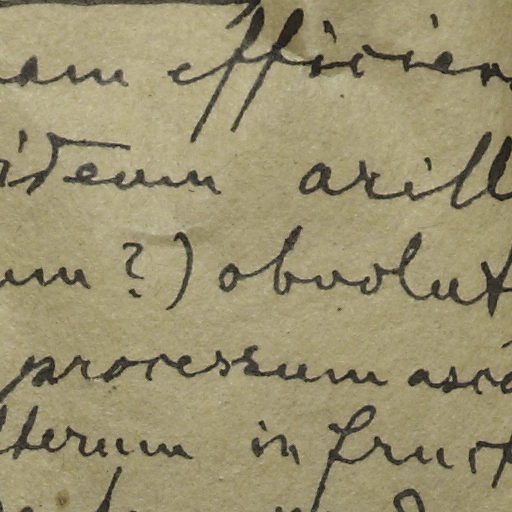 am efficien
ideum arill
um ?) obvolut
processum asc
lterum in fruct